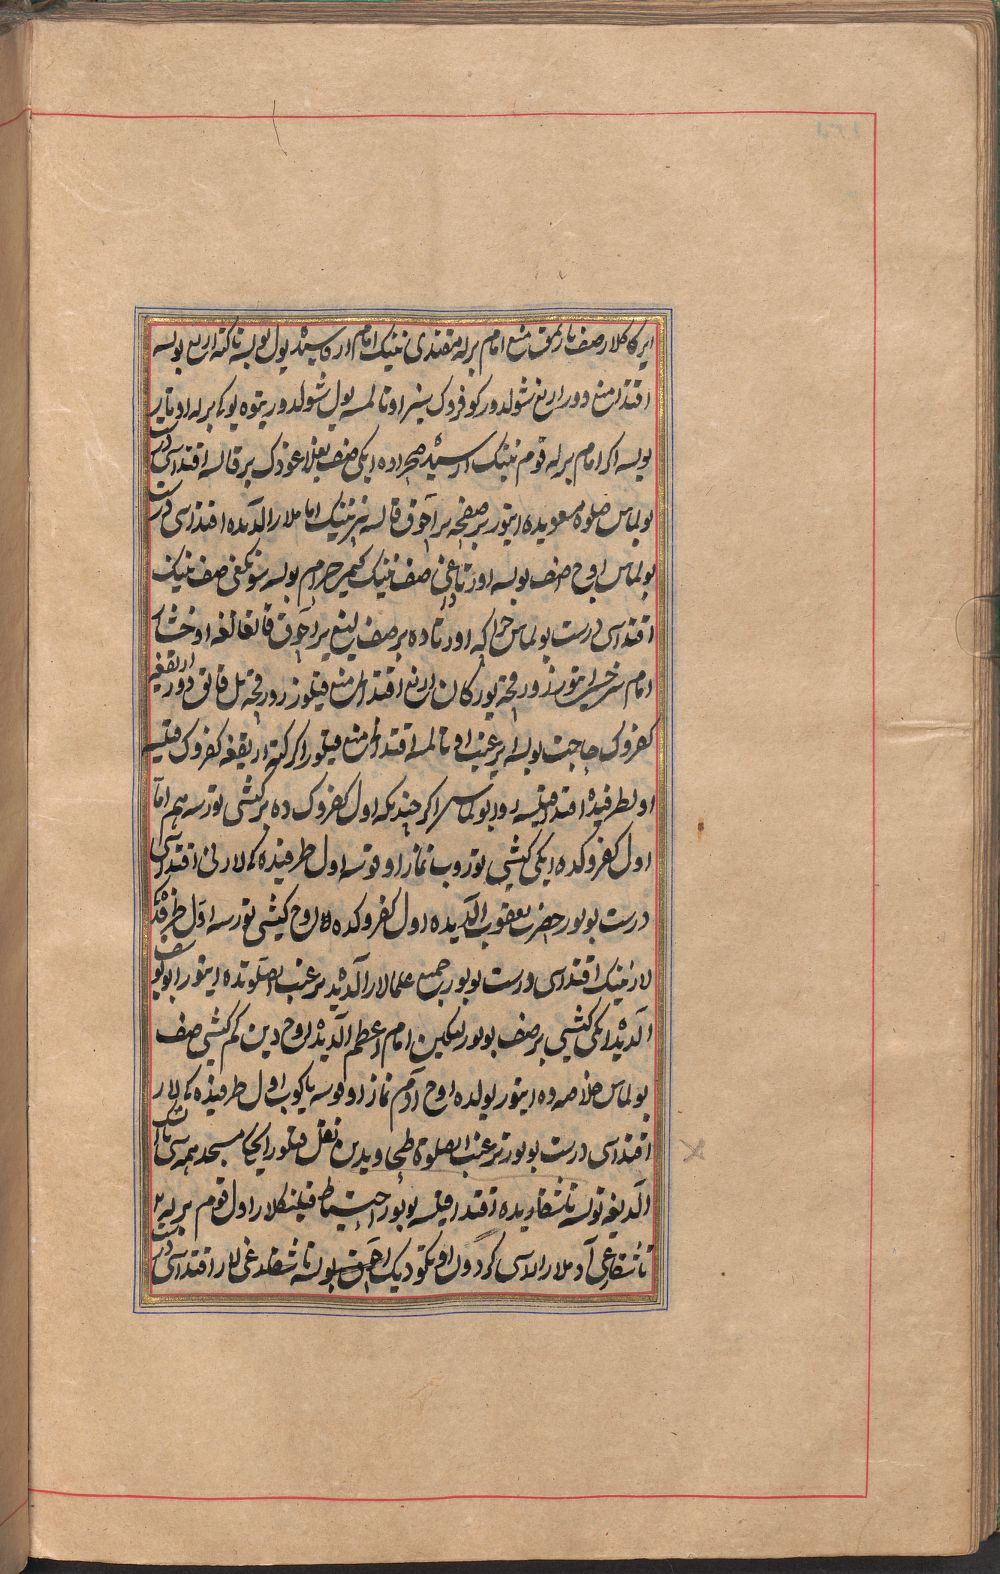 ایرکاکلار صف تارتمق منع امام برله مقتدی نینک امام ارقاسیده یول بولسه یا کته اریغ بولسه
اقتدا منع دور اریغ شولدور کوفروک سیز اوتالمسه یول شولدور تیوه یوکی برله اوتار
بولسه اکر امام برله قوم نینک اراسیده صحراده ایکی صف بغلاغودک یر قالسه اقتداسی درست
بولماس صلوة مسعودیده ایتور بر صفچه یر آچوق قالسه نینک اماملار الدیده اقتداسی درست
بولماس اوچ صف بولسه اورتاداغی صف نینک کیمی حرام بولسه سونکغی صف نینک
اقتداسی درست بولماس چراکه اورتاده بر صف لیغ یر آچوق قالغانغه اوخشار
امام سرخسی ایتور زورقچه یورکان اریغ اقتدانی منع قیلور زورقچه تل قایق دور اریقغه
کفروک حاجت بولسه یر غیب اوتالمسه اقتدانی منع قیلور اکر کته اریقغه کفروک قیلسه
اولطرفیده اقتدا قیلسه روا بولماس اکر چندیکه اول کفروک ده بر کیشی تورسه هم اما
اول کفروکده ایکی کیشی توروب نماز اوقوسه اول طرفیده کی لارنی اقتداسی
درست بولور حضرت یعقوب الدیده اول کفروکده اوچ کیشی تورسه اول طرفده کی
لارنینک اقتداسی درست بولور جمیع علمالار الدیده ترغیب الصلوتده ایتور ابو یوسف
الدیده ایکی کیشی بر صف بولور لیکین امام اعظم الدیده اوچ دین کم کیشی صف
بولماس خلاصه ده ایتور یولده اوچ آدم نماز اوقوسه یاکوب اول طرفیده کی لار
اقتداسی درست بولور ترغیب الصلوة طحاویدین نقل قیلور ایچکی مسجد همه سی تمام
الدیغه تولسه تاشقاریده اقتدا قیلسه بولور احتیاط قیلینکلار اول قوم برله
تاشقارغی آدملار اراسی کردون اوتکودیک آچوق بولسه تاشقارغی لار اقتداسی درست